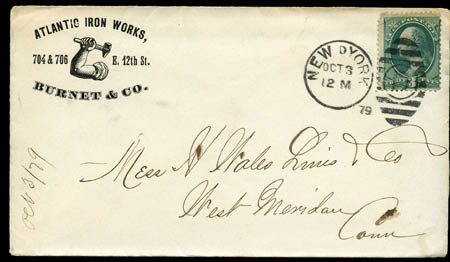 ATLANTIC IRON WORKS,
704 & 706 E. 12th St.
BURNET & CO.
NEW YORK
OCT 3
12 M
79
Mess H Wales Lines & Co
West Meriden
Conn
Oct 3/79